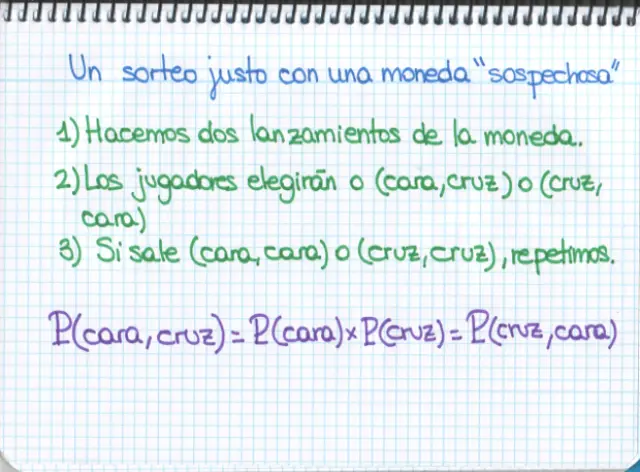 Un sorteo justo con una moneda "sospechosa"
1) Hacemos dos lanzamientos de la moneda.
2) Los jugadores elegirán o (cara, cruz) o (cruz,
cara)
3) Si sale (cara, cara) o (cruz, cruz), repetimos.
P(cara, cruz) = P(cara) x P(cruz) = P(cruz, cara)